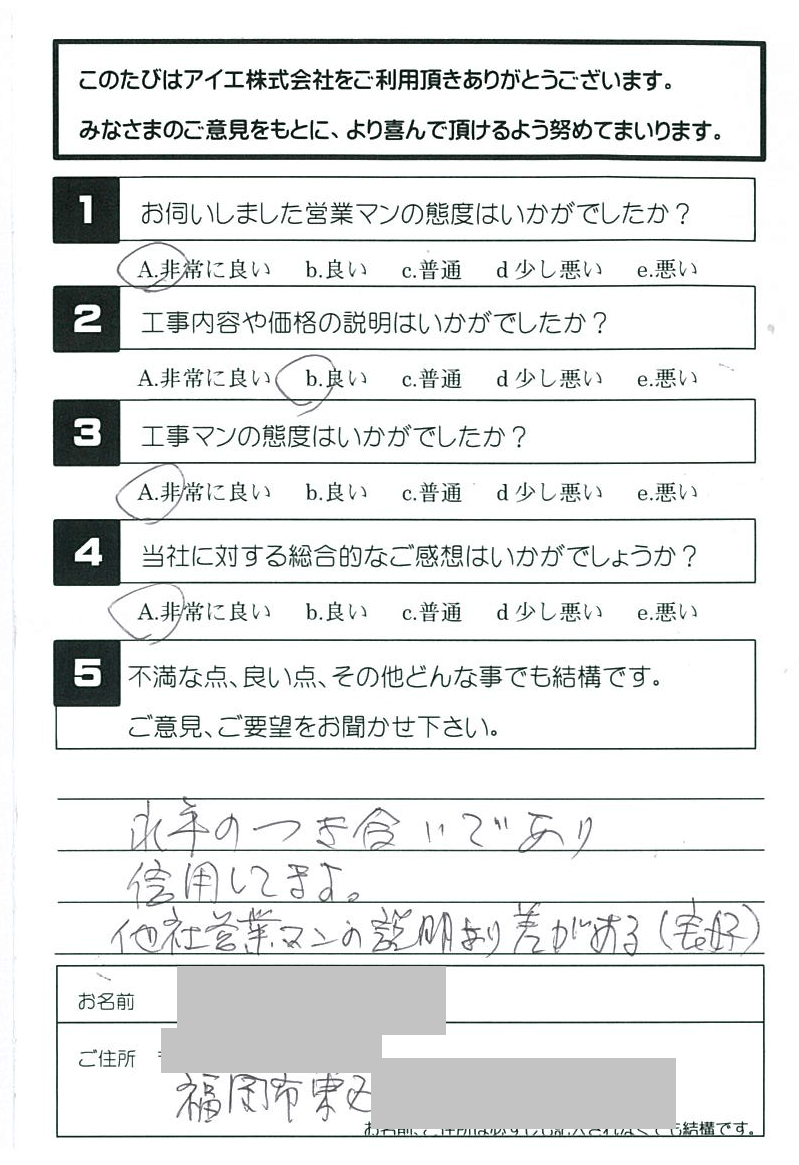 このたびはアイエ株式会社をご利用頂きありがとうございます。
みなさまのご意見をもとに、より喜んで頂けるよう努めてまいります。
1 お伺いしました営業マンの態度はいかがでしたか？
A.非常に良い b.良い c.普通 d 少し悪い e.悪い
2 工事内容や価格の説明はいかがでしたか？
A.非常に良い b.良い c.普通 d 少し悪い e.悪い
3 工事マンの態度はいかがでしたか？
A.非常に良い b.良い c.普通 d 少し悪い e.悪い
4 当社に対する総合的なご感想はいかがでしょうか？
A.非常に良い b.良い c.普通 d 少し悪い e.悪い
5 不満な点、良い点、その他どんな事でも結構です。
ご意見、ご要望をお聞かせ下さい。
永年のつき合いであり
信用してます。
他社営業マンの説明より差がある
お名前
ご住所
福岡市東区
結構です。